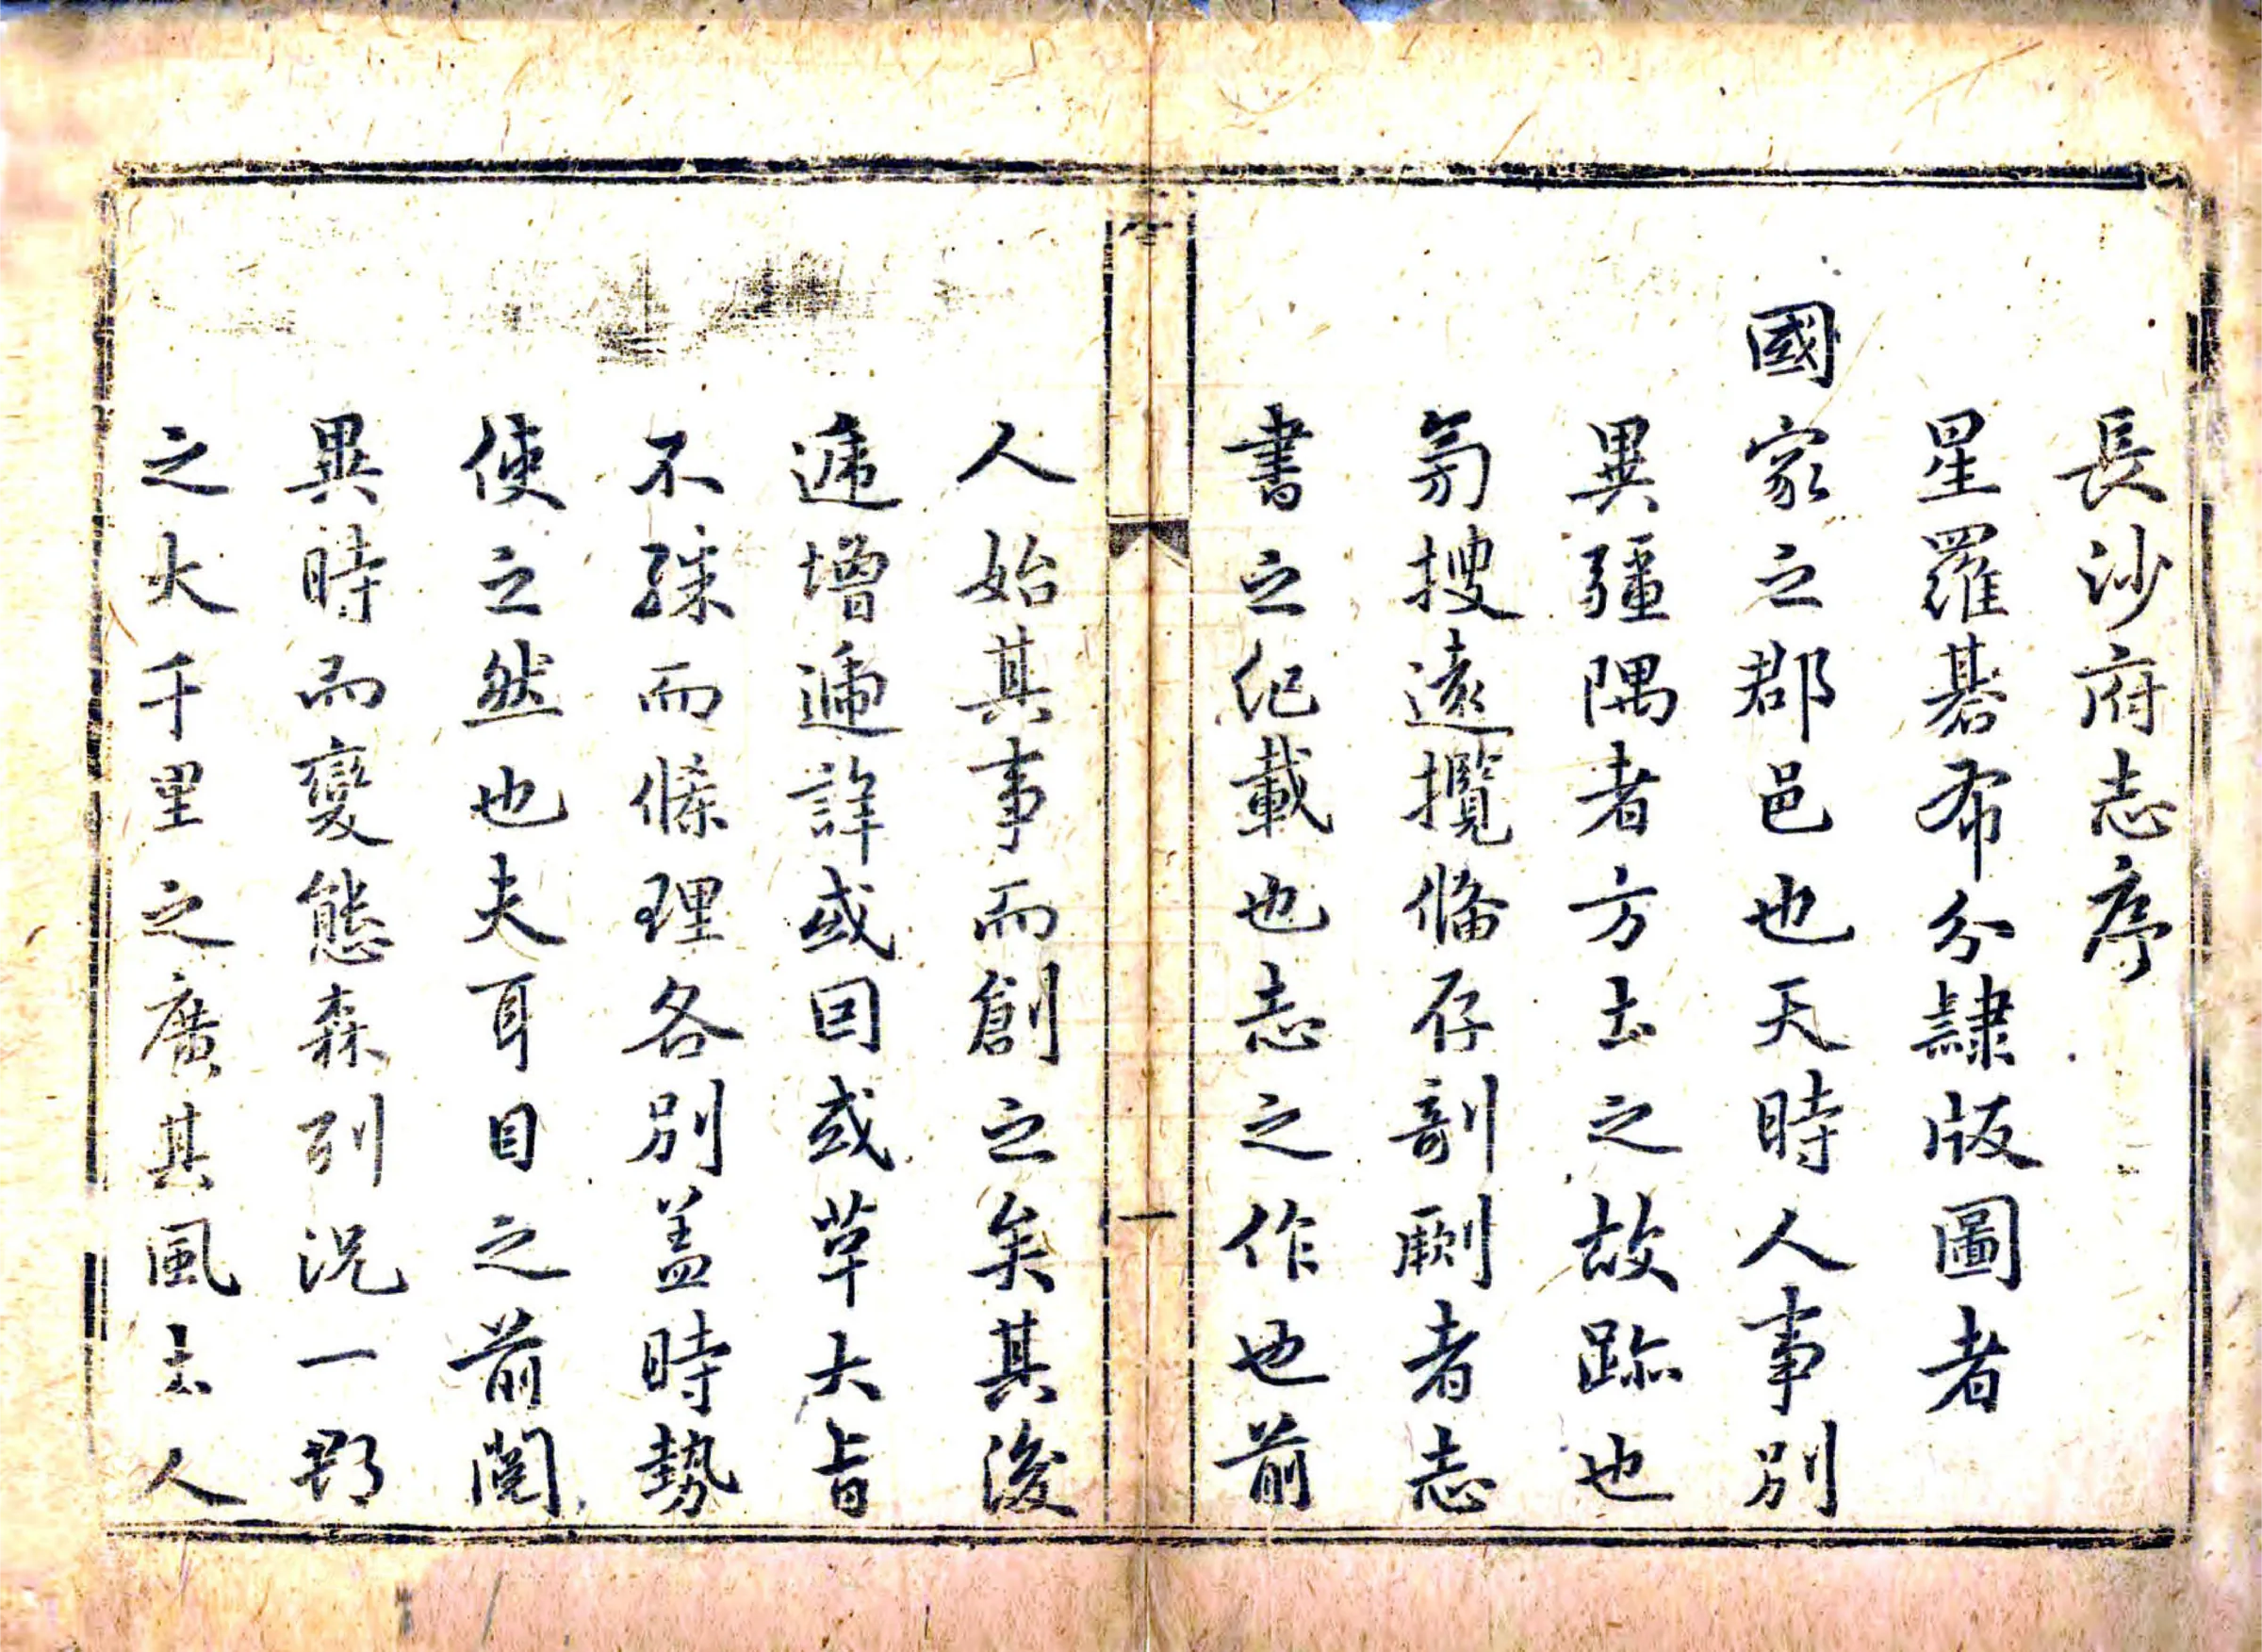 長沙府志序
星羅碁布分隷版圖者
國家之郡邑也天時人事別
異疆隅者方土之故跡也
旁搜遠攬俻存剞劂者志
書之紀載也志之作也前
人始其事而創之矣其後
遞增遞詳或因或革大旨
不殊而條理各別盖時勢
使之然也夫耳目之前閱
異時而變態森列况一郡
之大千里之廣其風土人
一